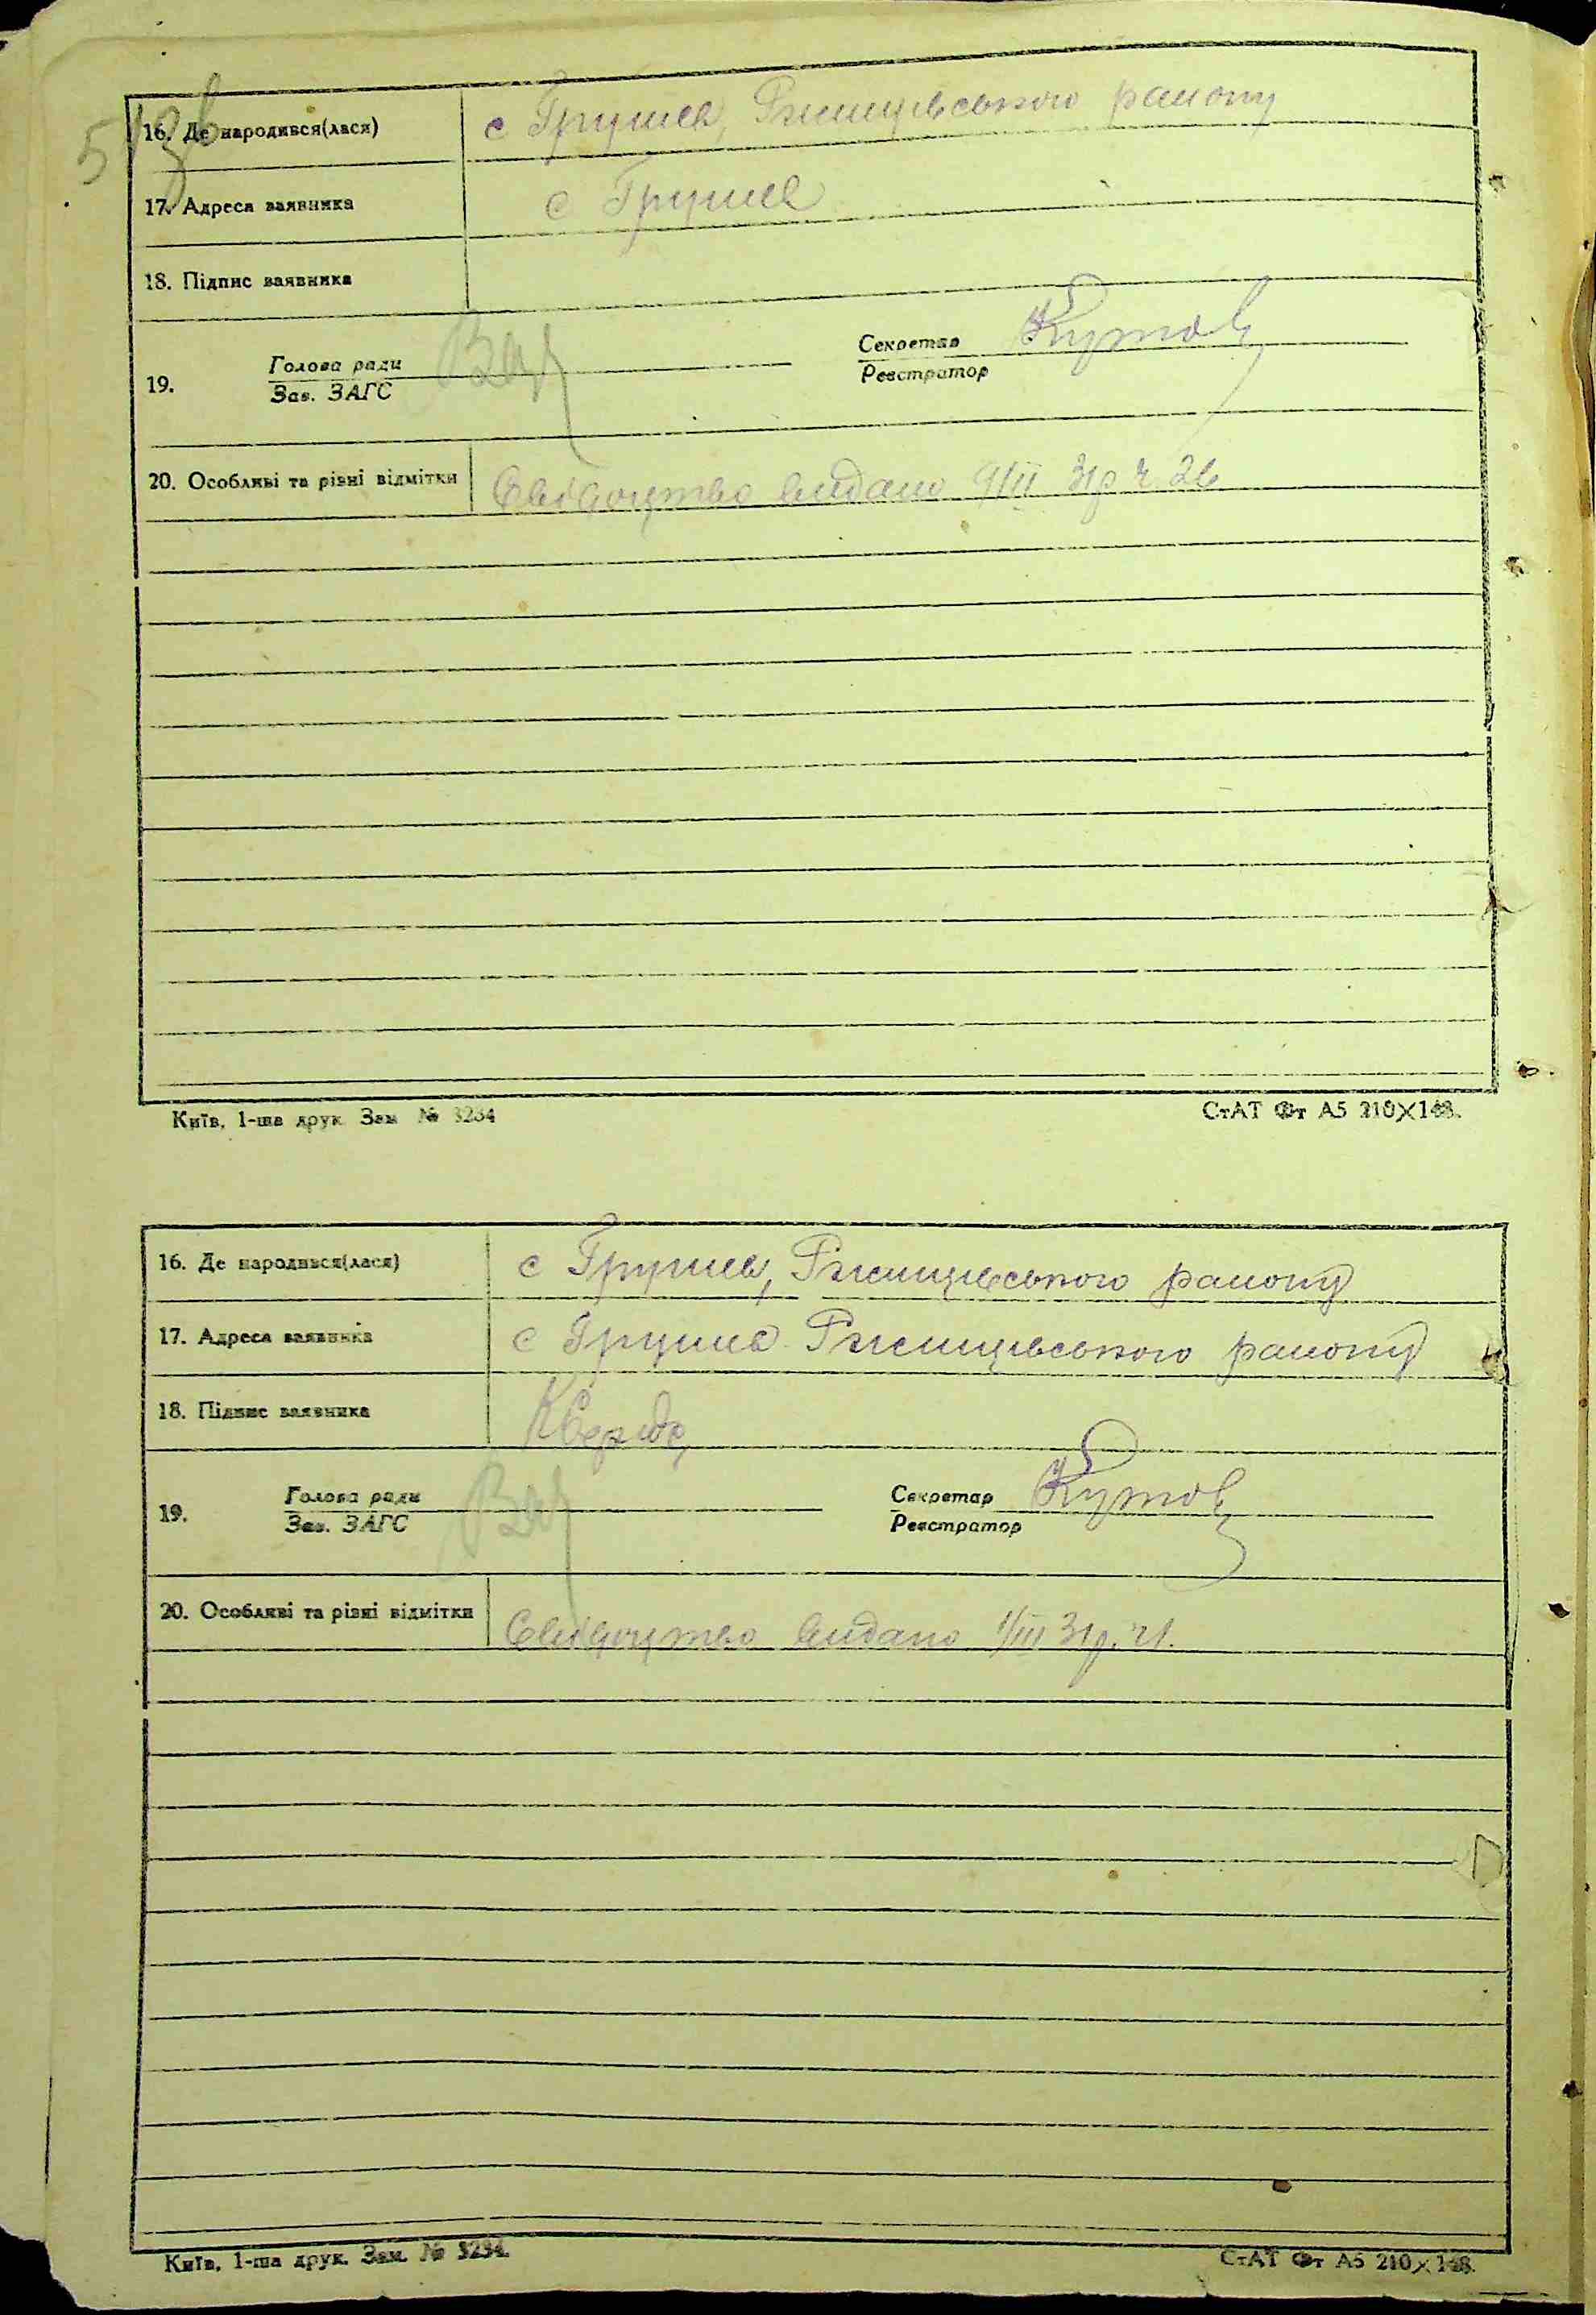 16. Де народився(лася) с Грушев, Ржищівського району
17. Адреса заявника с Грушев
18. Підпис заявника
Голова ради Секретар
19. Зав. ЗАГС Реєстратор
20. Особливі та різні відмітки Свідоцтво видано 9/III 31р ч. 26
Київ, 1-ша друк. Зам. № 3234 СтАТ Фт А5 210×148.
16. Де народився(лася) с Грушев, Ржищівського району
17. Адреса заявника с Грушев Ржищівського району
18. Підпис заявника
Голова ради Секретар
19. Зав. ЗАГС Реєстратор
20. Особливі та різні відмітки Свідоцтво видано 1/III 31р. ч1.
Київ, 1-ша друк. Зам. № 3234. СтАТ Фт А5 210×148.